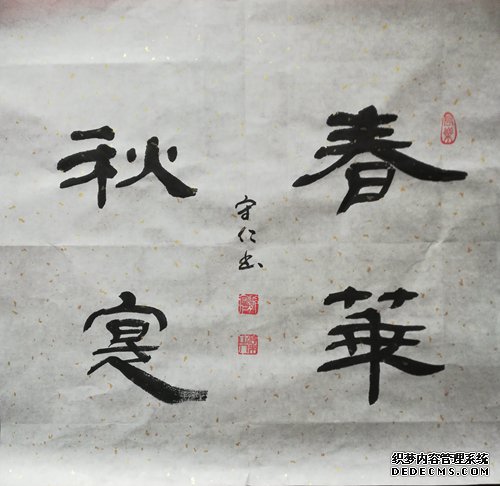 春華
秋寔
守仁书
织梦内容管理系统
DEDECMS.COM